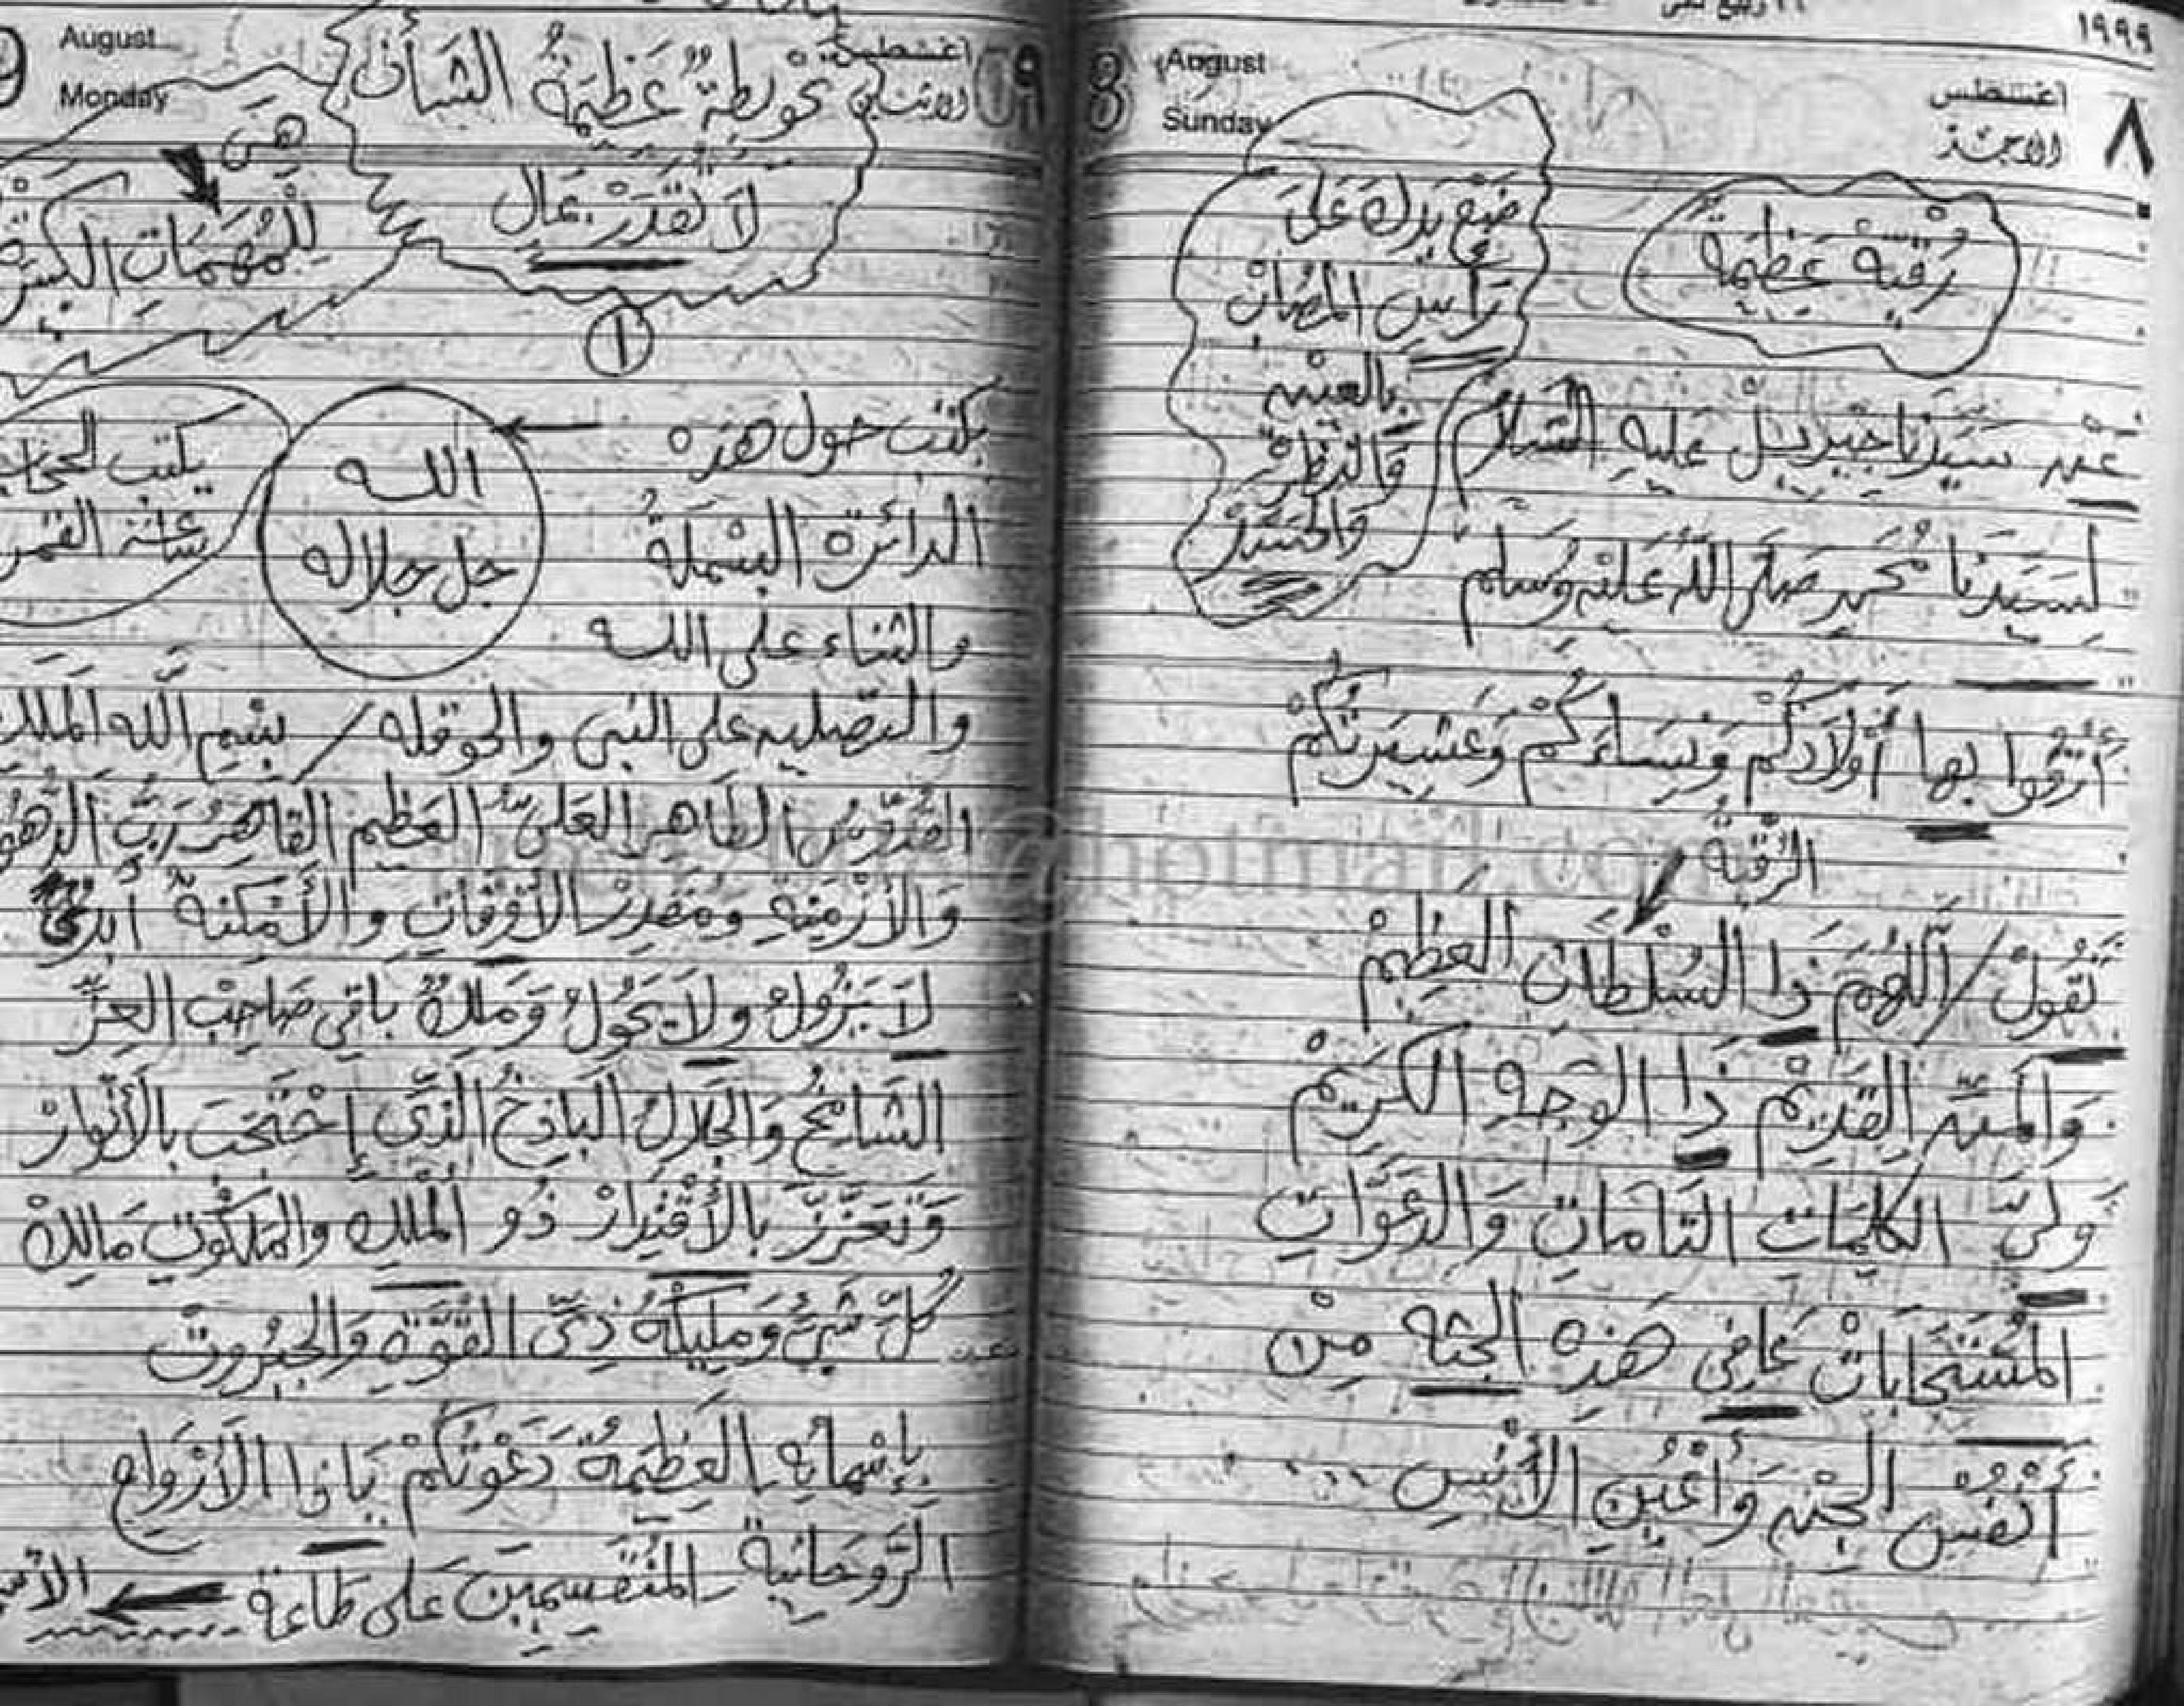 ١٩٩٩
٨
اغسطس
الاحد
August
Sunday
8
رقية عظيمة
ضع يدك على
رأس المصاب
بالعين
والنظرة
والحسد
عن سيدنا جبريل عليه السلام
لسيدنا محمد صلى الله عليه وسلم
أرقوا بها أولادكم ونساءكم وعشيرتكم
الرقية
تقول / اللهم ذا السلطان العظيم
والمن القديم ذا الوجه الكريم
ولي الكلمات التامات والدعوات
المستجابات عافي هذه الجثه من
أنفس الجن وأعين الأنس
August
Monday
اغسطس
الاثنين
٩
تحويطة عظيمة الشأن
لا تقدر بمال
هي
للمهمات
١
يكتب حول هذه
الدائرة البسملة
والثناء على الله
الله
جل جلاله
يكتب
ساعة القمر
والتصليه على النبي والحوقله / بسم الله الملك
القدوس الطاهر العلي العظيم القاهر رب الدهور
والأزمنة ومقدر الأوقات والأمكنة أبدي
لا يزول ولا يحول وملك باقي صاحب العز
الشامخ والجلال الباذخ الذي إحتجب بالأنوار
وتعزز بالأقتدار ذو الملك والملكوت مالك
كل شيء ومليكه ذي القوة والجبروت
بإسمائه العظيمة دعوتكم ياذا الأرواح
الروحانية المنقسمين على طاعة